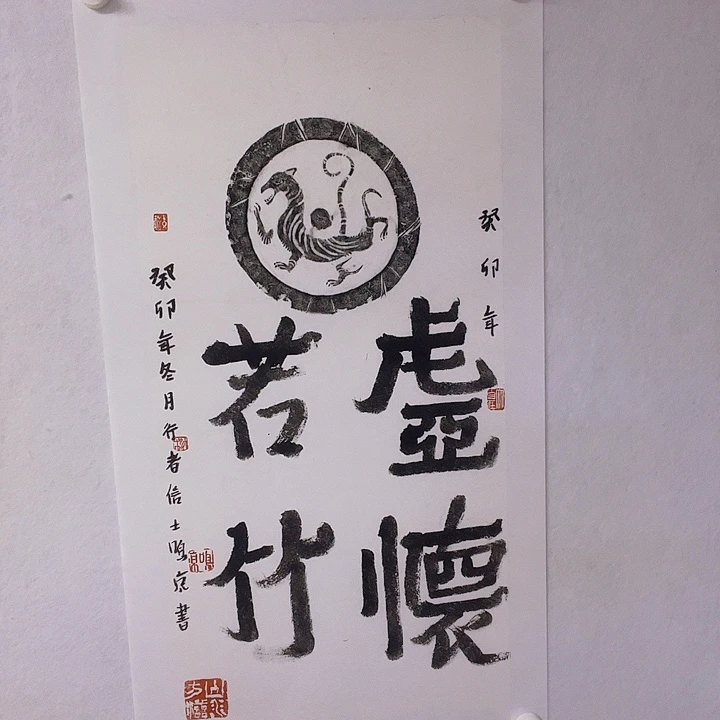 癸卯年
虛懷
若竹
癸卯年冬月行者信士鳴京書